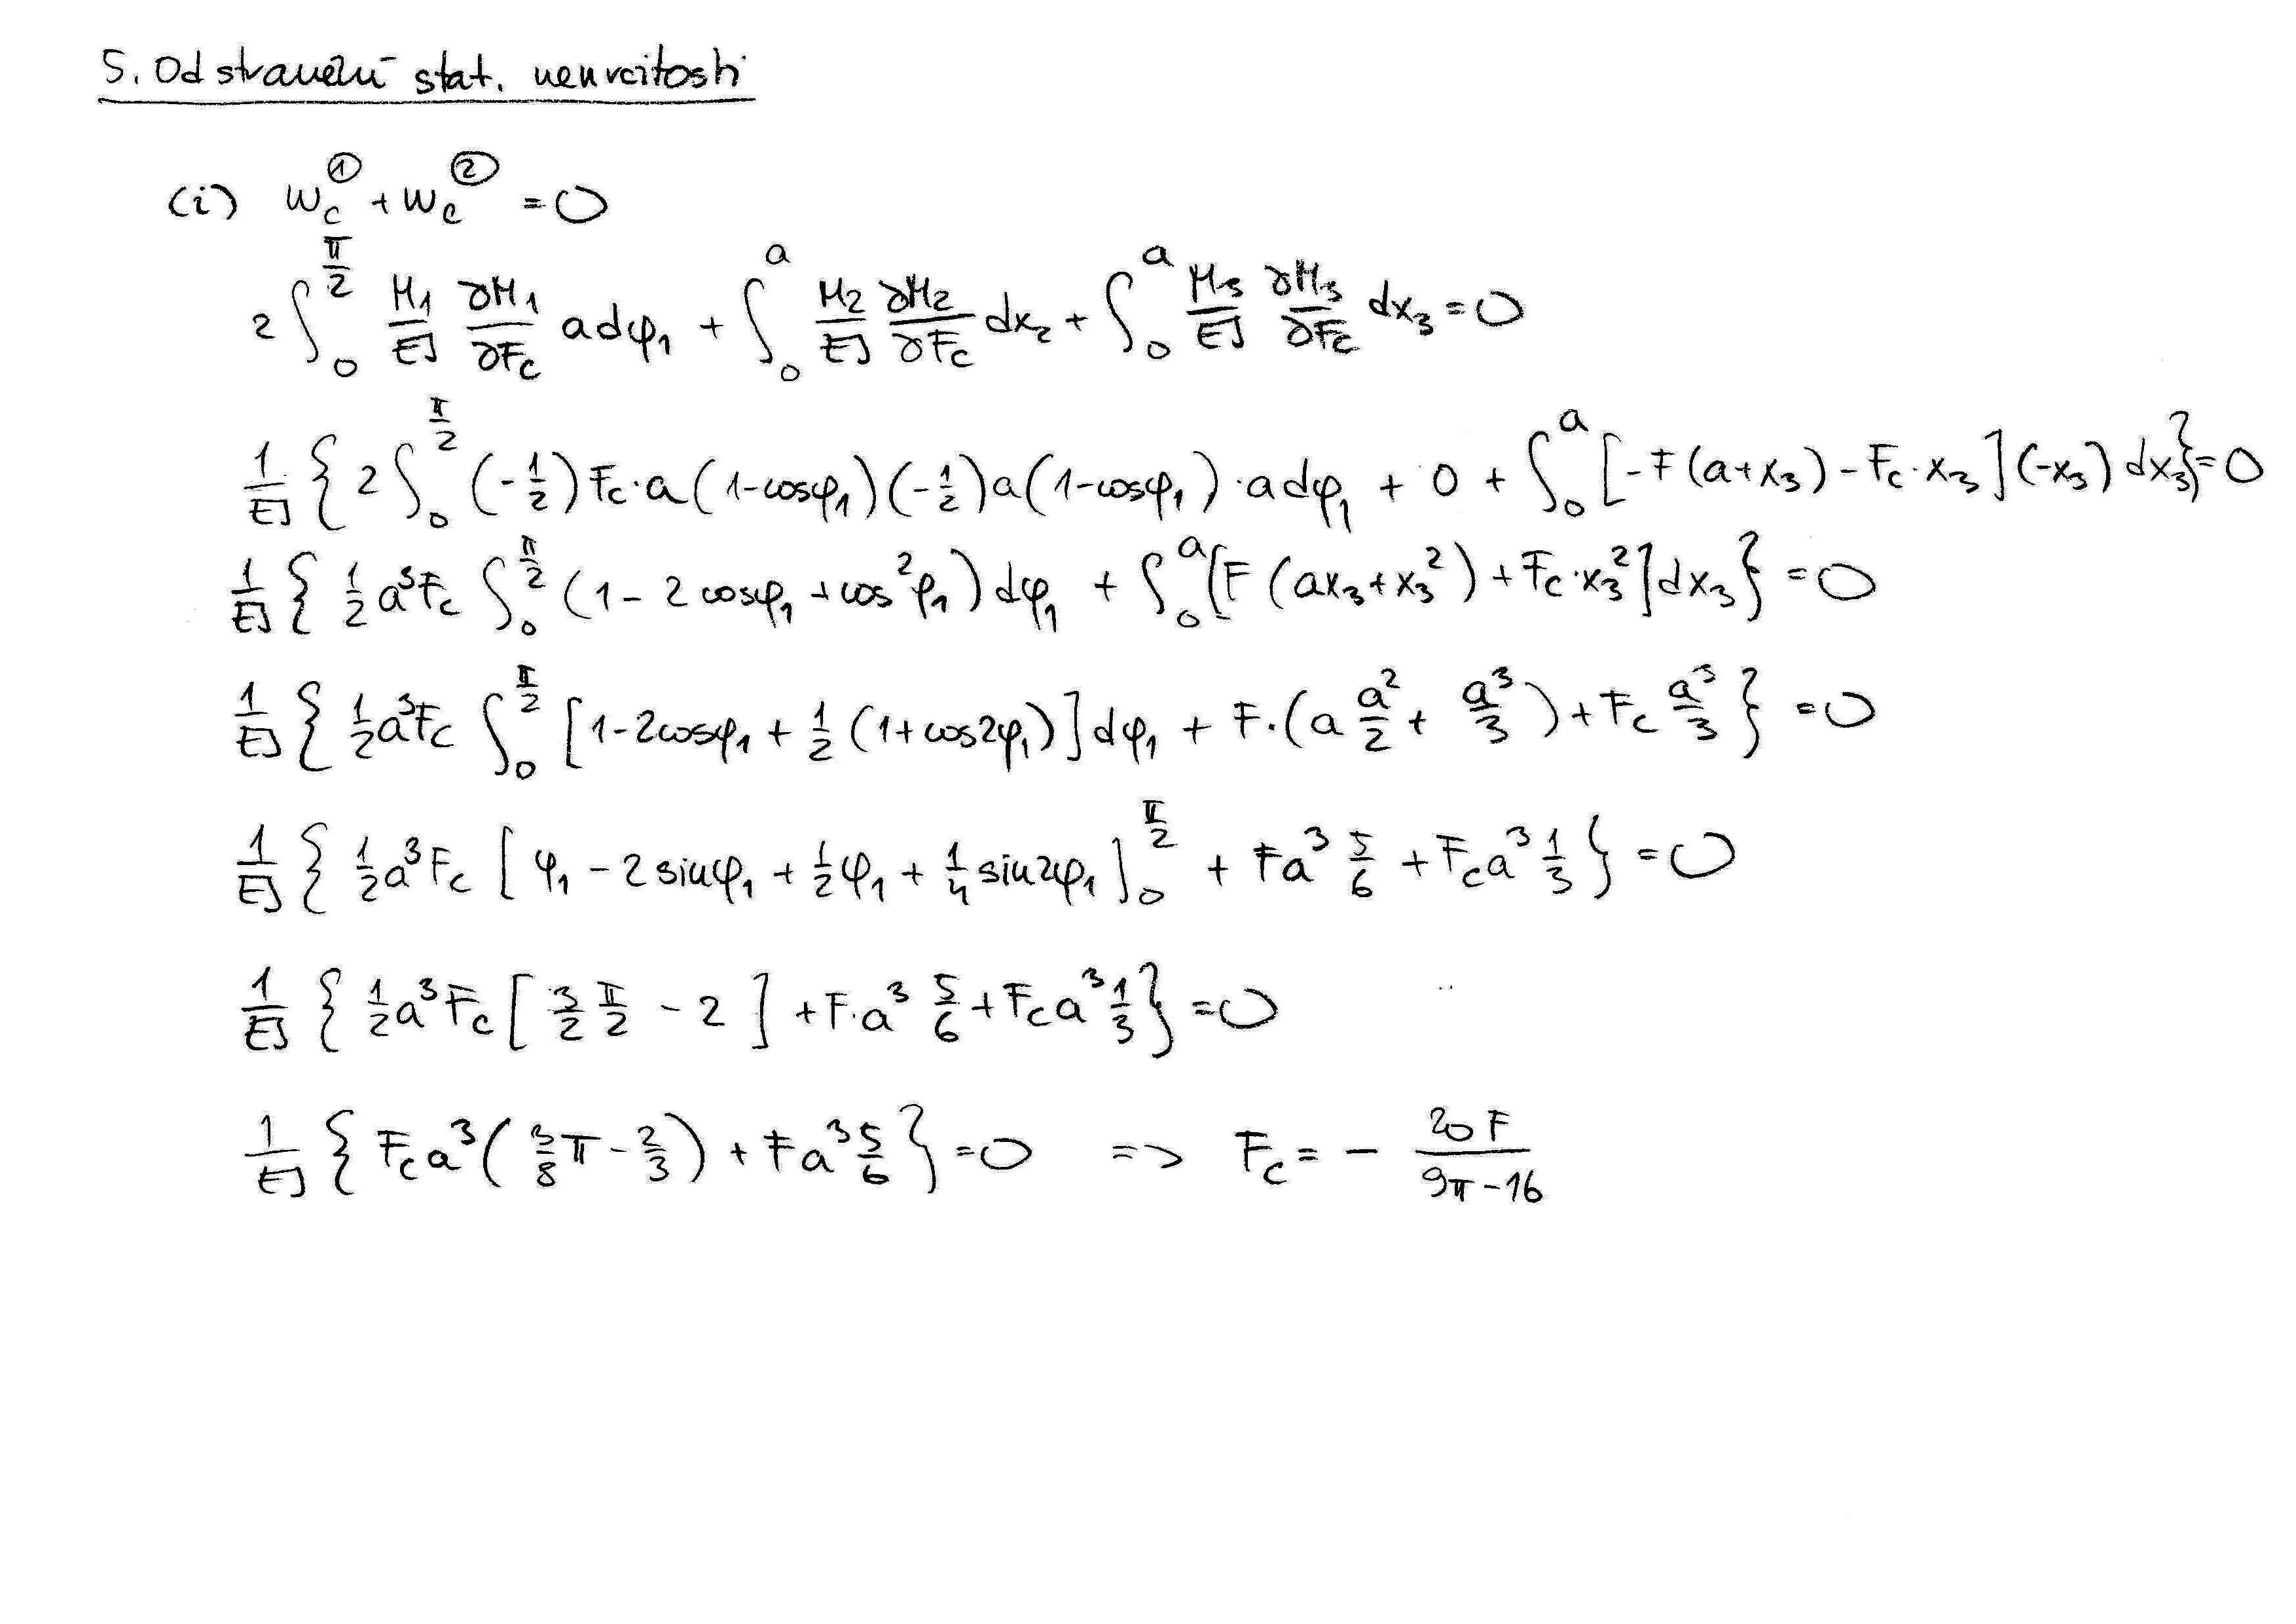 5. Odstranění stat. neurčitosti
(i) w_C^① + w_C^② = 0
2 ∫_0^{π/2} M₁/EJ ∂M₁/∂F_C a dφ₁ + ∫_0^a M₂/EJ ∂M₂/∂F_C dx₂ + ∫_0^a M₃/EJ ∂M₃/∂F_C dx₃ = 0
1/EJ { 2 ∫_0^{π/2} (-1/2) F_C · a (1-cosφ₁)(-1/2) a (1-cosφ₁) · a dφ₁ + 0 + ∫_0^a [-F(a+x₃) - F_C · x₃](-x₃) dx₃ } = 0
1/EJ { 1/2 a³F_C ∫_0^{π/2} (1 - 2 cosφ₁ + cos²φ₁) dφ₁ + ∫_0^a [F (ax₃ + x₃²) + F_C · x₃²] dx₃ } = 0
1/EJ { 1/2 a³F_C ∫_0^{π/2} [1 - 2cosφ₁ + 1/2 (1 + cos2φ₁)] dφ₁ + F · (a a²/2 + a³/3) + F_C a³/3 } = 0
1/EJ { 1/2 a³F_C [φ₁ - 2 sinφ₁ + 1/2 φ₁ + 1/4 sin2φ₁]_0^{π/2} + Fa³ 5/6 + F_C a³ 1/3 } = 0
1/EJ { 1/2 a³F_C [3/2 π/2 - 2] + F·a³ 5/6 + F_C a³ 1/3 } = 0
1/EJ { F_C a³ (3/8 π - 2/3) + Fa³ 5/6 } = 0 => F_C = - 20F/(9π-16)